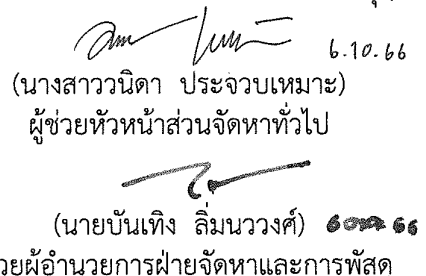 6.10.66
(นางสาววนิดา ประจวบเหมาะ)
ผู้ช่วยหัวหน้าส่วนจัดหาทั่วไป
(นายบันเทิง ลิ่มนววงศ์) 66
วยผู้อำนวยการฝ่ายจัดหาและการพัสดุ